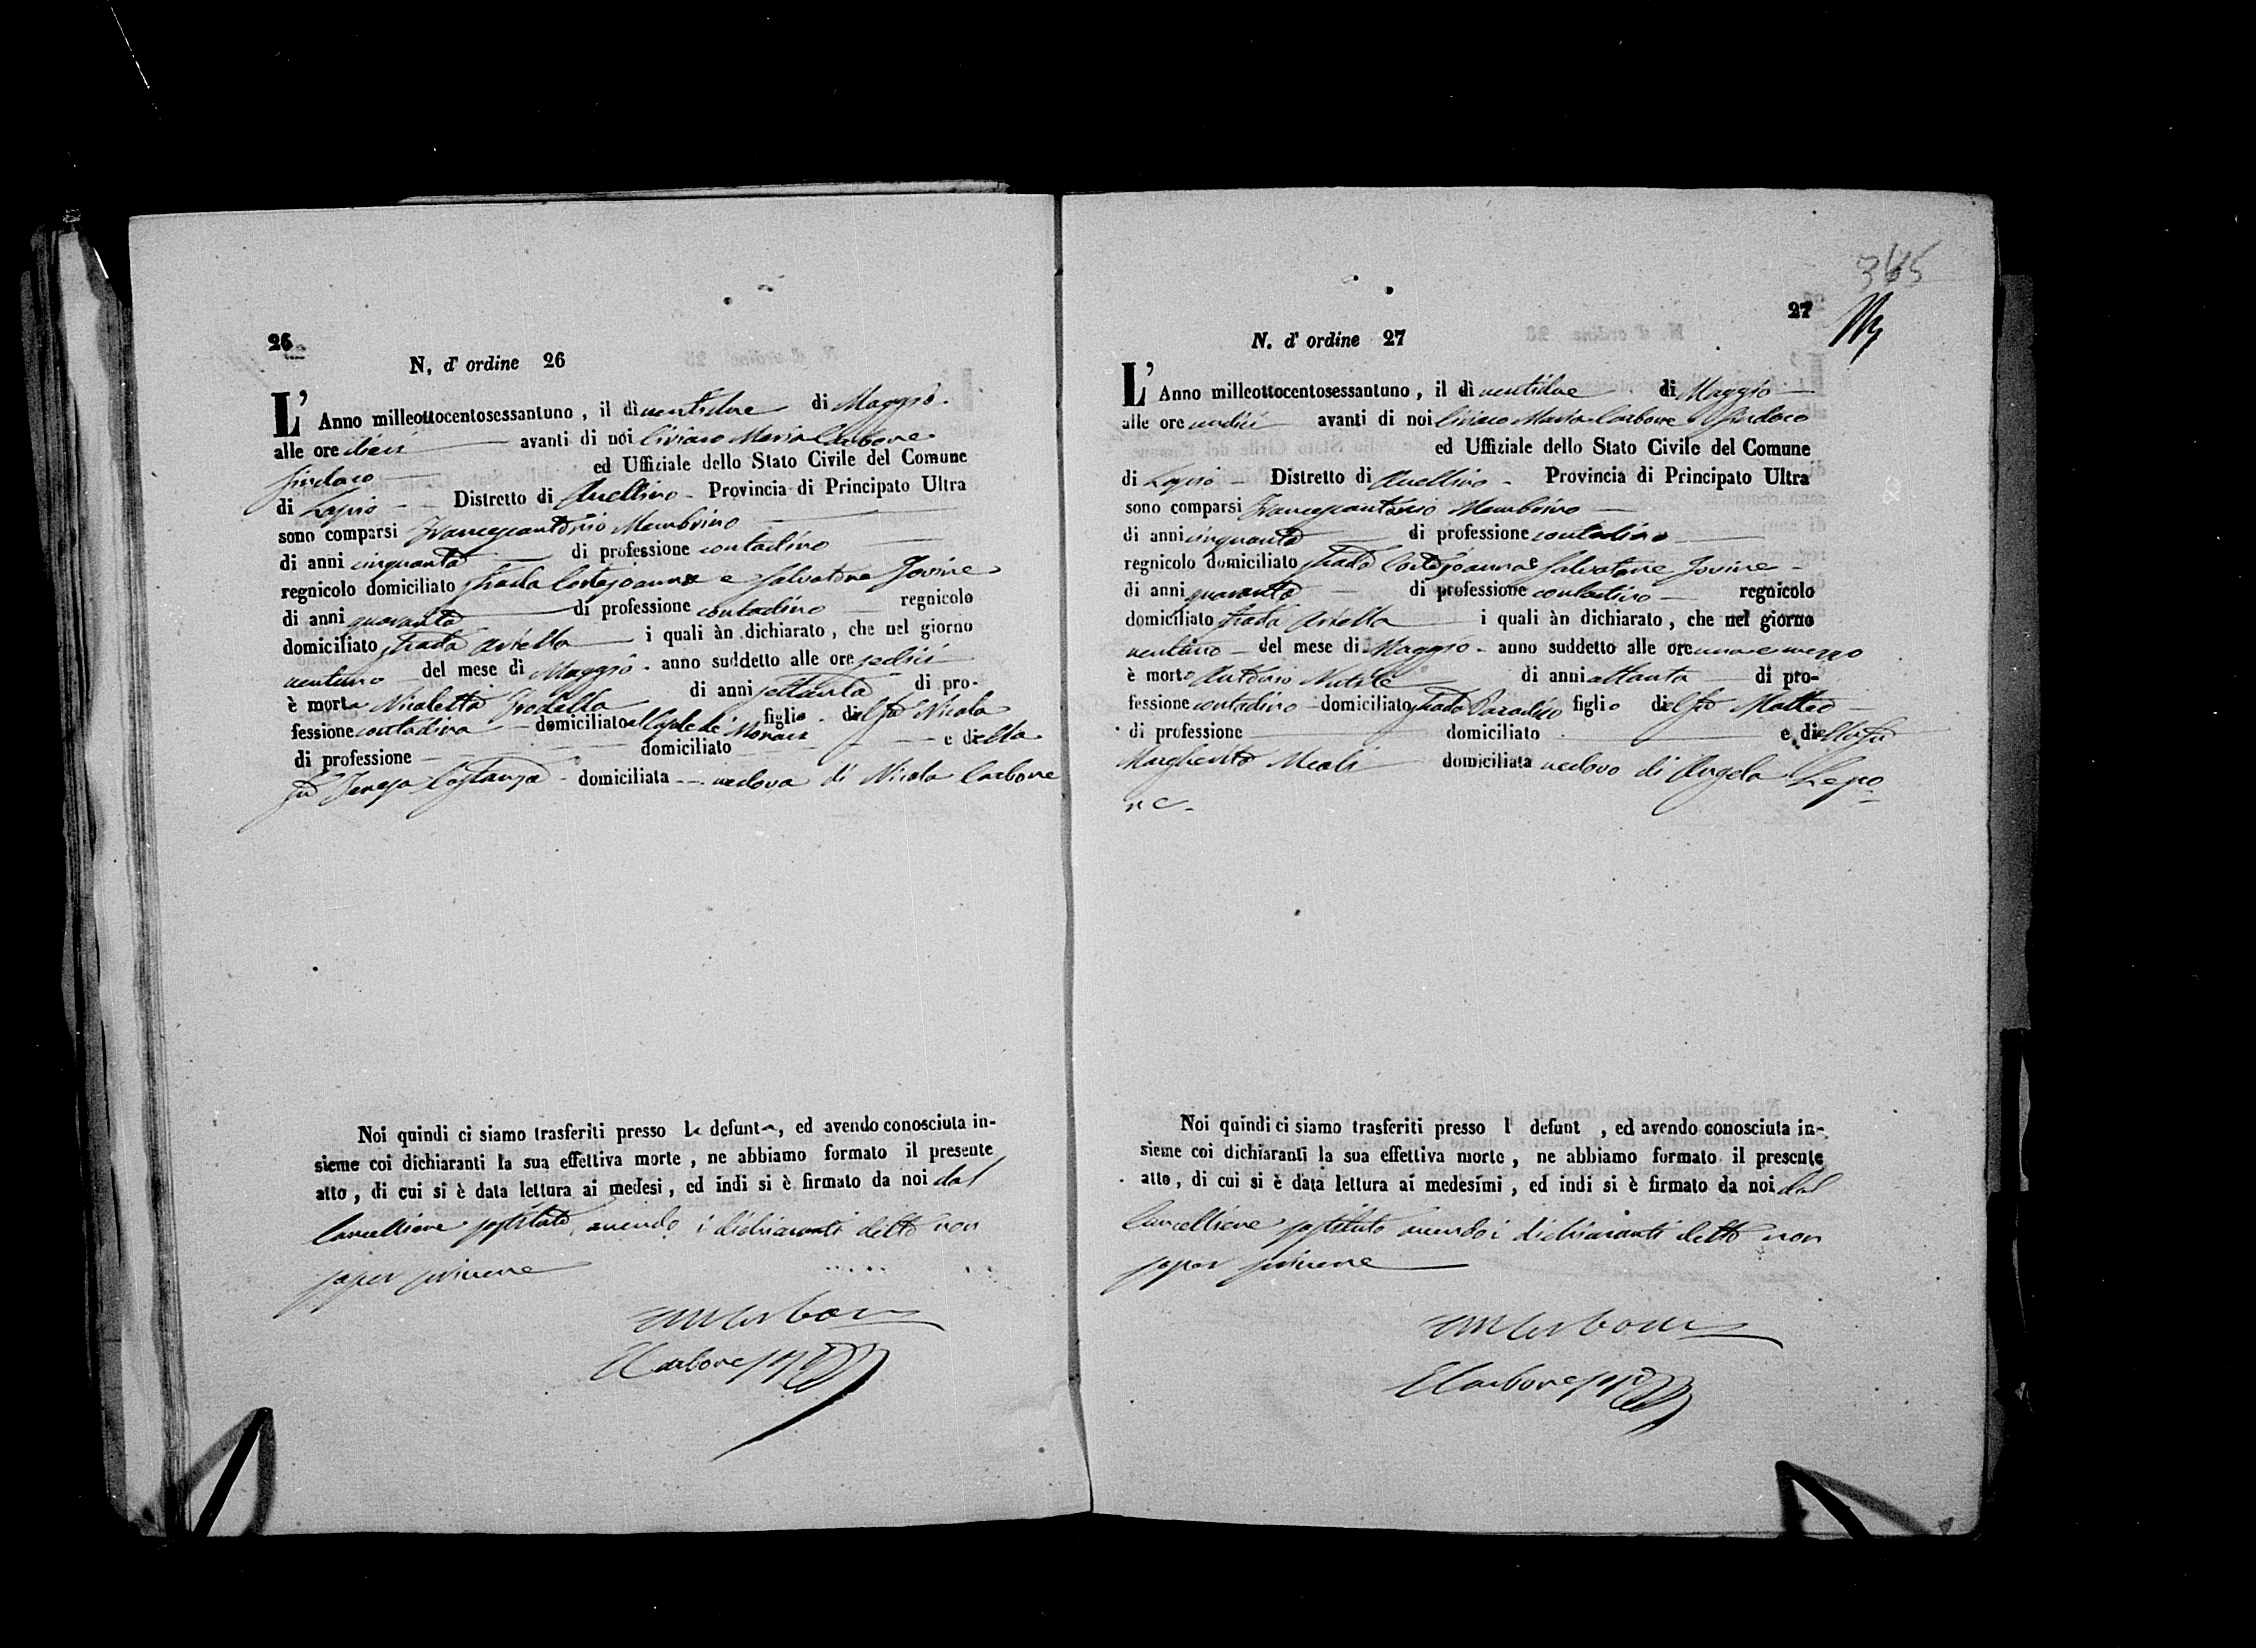 26
N. d' ordine 26
L' Anno milleottocentosessantuno, il dì ventidue di Maggio
alle ore dieci avanti di noi Ciriaco Maria Carbone
sindaco ed Uffiziale dello Stato Civile del Comune
di Lapio Distretto di Avellino Provincia di Principato Ultra
sono comparsi Francescantonio Membrino
di anni cinquanta di professione contadino
regnicolo domiciliato strada Cortejoanna e Salvatore Jovine
di anni quaranta di professione contadino regnicolo
domiciliato strada Ariella i quali àn dichiarato, che nel giorno
ventuno del mese di Maggio anno suddetto alle ore sedici
è morta Nicoletta di anni settanta di pro-
fessione contadina domiciliato figlia del fu Nicola
di professione domiciliato e della
fu Teresa Costanza domiciliata vedova di Nicola Carbone
Noi quindi ci siamo trasferiti presso la defunta, ed avendo conosciuta in-
sieme coi dichiaranti la sua effettiva morte, ne abbiamo formato il presente
atto, di cui si è data lettura ai medesi, ed indi si è firmato da noi dal
Cancelliere sostituto, avendo i dichiaranti detto non
saper scrivere
CM Carbone
E Carbone
365
27
N. d' ordine 27
L' Anno milleottocentosessantuno, il dì ventidue di Maggio
alle ore undici avanti di noi Ciriaco Maria Carbone Sindaco
ed Uffiziale dello Stato Civile del Comune
di Lapio Distretto di Avellino Provincia di Principato Ultra
sono comparsi Francescantonio Membrino
di anni cinquanta di professione contadino
regnicolo domiciliato strada Cortejoanna e Salvatore Jovine
di anni quaranta di professione contadino regnicolo
domiciliato strada Ariella i quali àn dichiarato, che nel giorno
ventuno del mese di Maggio anno suddetto alle ore una e mezzo
è morto Antonio Nutile di anni ottanta di pro-
fessione contadino domiciliato strada Paradiso figlio del fu Matteo
di professione domiciliato e della fu
Margherita Meoli domiciliata vedovo di Angela Lepo
re
Noi quindi ci siamo trasferiti presso l defunt , ed avendo conosciuta in-
sieme coi dichiaranti la sua effettiva morte, ne abbiamo formato il presente
atto, di cui si è data lettura ai medesimi, ed indi si è firmato da noi dal
Cancelliere sostituto avendo i dichiaranti detto non
saper scrivere
CM Carbone
E Carbone